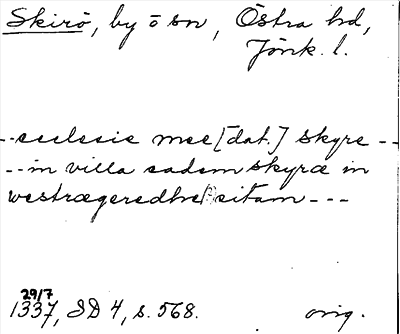 Skirö, by o sn, Östra hd,
Jönk. l.
--ecclesie mee [dat.] skyre --
--in villa eadem skyræ in
westrægeredhe sitam ---
29/7
1337, SD 4, s. 568. orig.